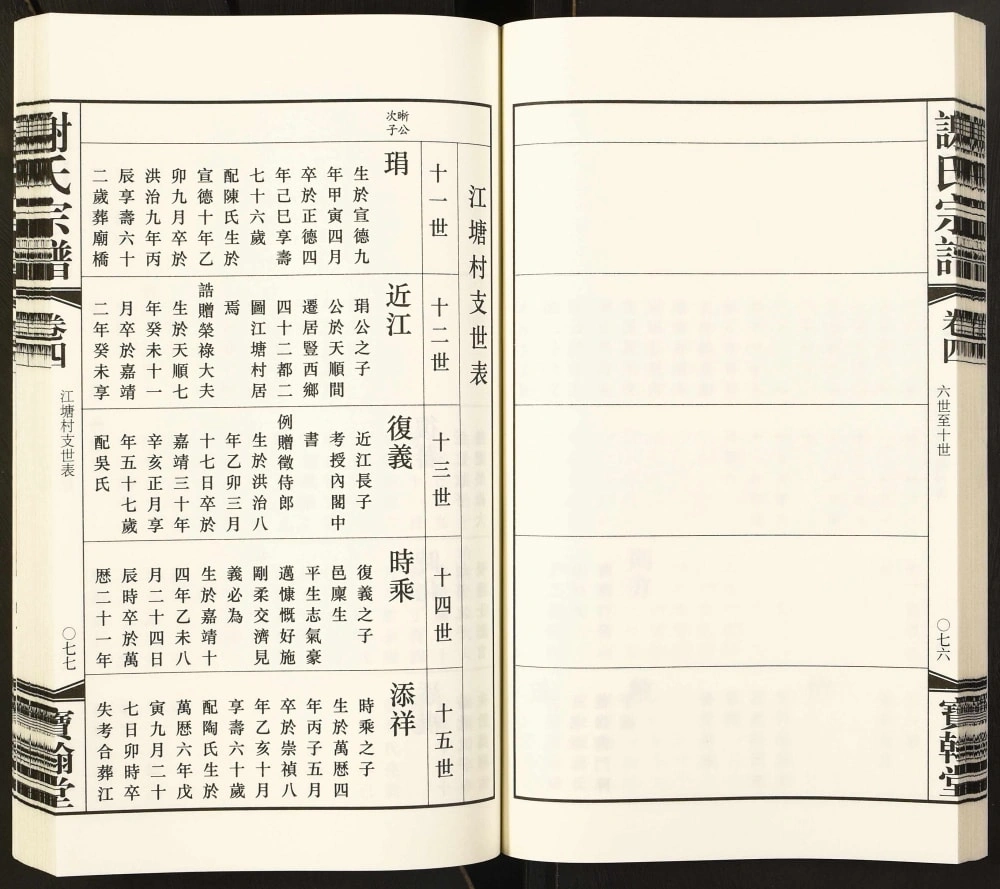 謝氏宗譜
卷四
六世至十世
〇七六
寶翰堂
江塘村支世表
十一世
十二世
十三世
十四世
十五世
晰公
次子
琄
生於宣德九
年甲寅四月
卒於正德四
年己巳享壽
七十六歲
配陳氏生於
宣德十年乙
卯九月卒於
洪治九年丙
辰享壽六十
二歲葬廟橋
近江
琄公之子
公於天順間
遷居豎西鄉
四十二都二
圖江塘村居
焉
誥贈榮祿大夫
生於天順七
年癸未十一
月卒於嘉靖
二年癸未享
復義
近江長子
考授內閣中
書
例贈徵侍郎
生於洪治八
年乙卯三月
十七日卒於
嘉靖三十年
辛亥正月享
年五十七歲
配吳氏
時乘
復義之子
邑廩生
平生志氣豪
邁慷慨好施
剛柔交濟見
義必為
生於嘉靖十
四年乙未八
月二十四日
辰時卒於萬
歷二十一年
添祥
時乘之子
生於萬歷四
年丙子五月
卒於崇禎八
年乙亥十月
享壽六十歲
配陶氏生於
萬歷六年戊
寅九月二十
七日卯時卒
失考合葬江
謝氏宗譜
卷四
江塘村支世表
〇七七
寶翰堂